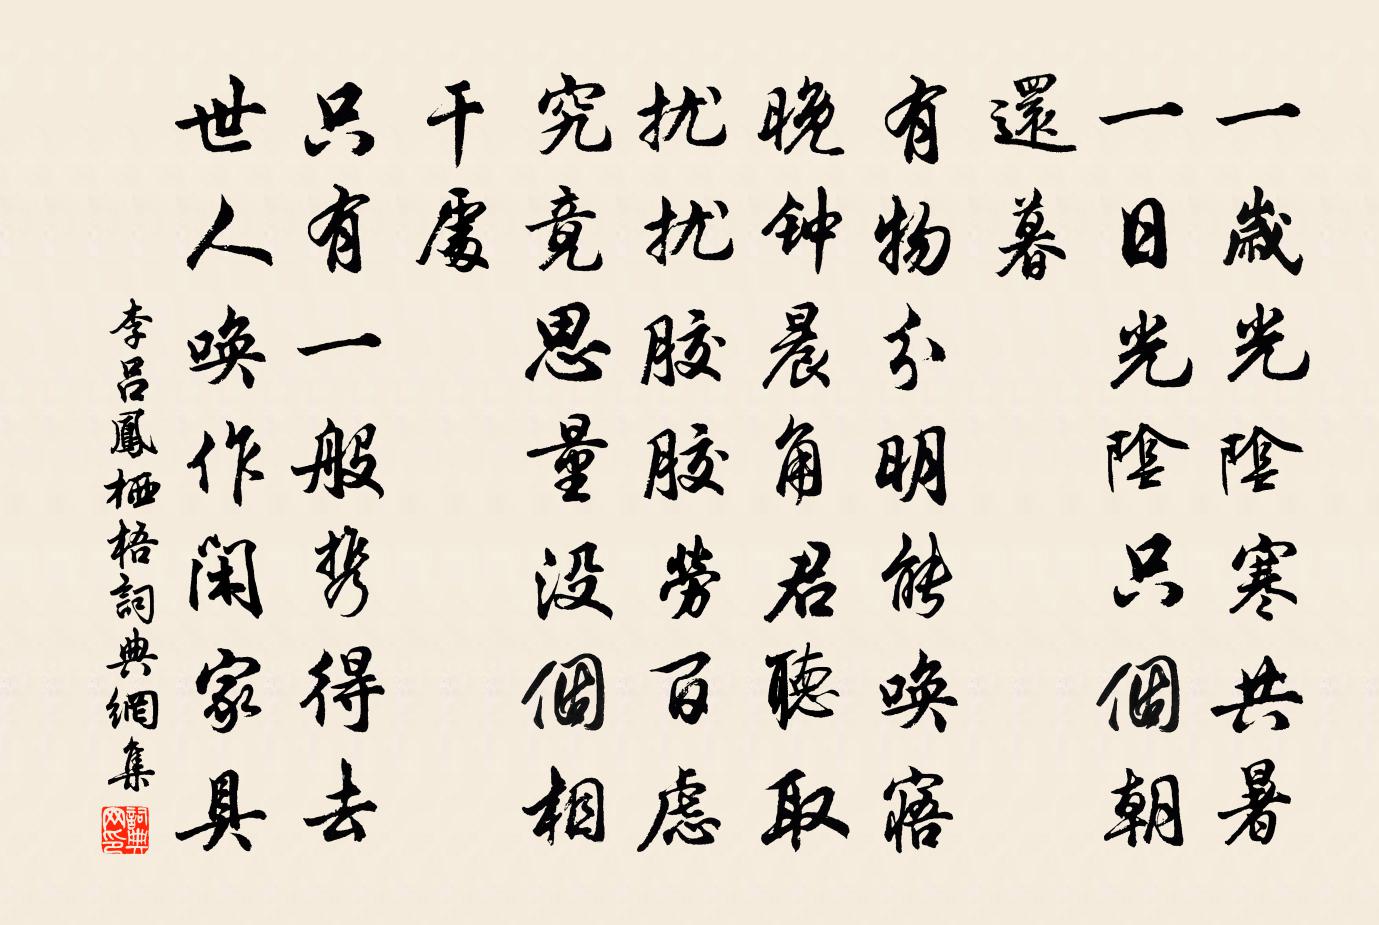 一歲光陰寒共暑
一日光陰只個朝
還暮
有物分明能唤寤
晚钟晨角君聽取
扰扰胶胶勞百慮
究竟思量没個相
干處
只有一般携得去
世人唤作闲家具
李吕鳳栖梧詞典網集
詞典网印